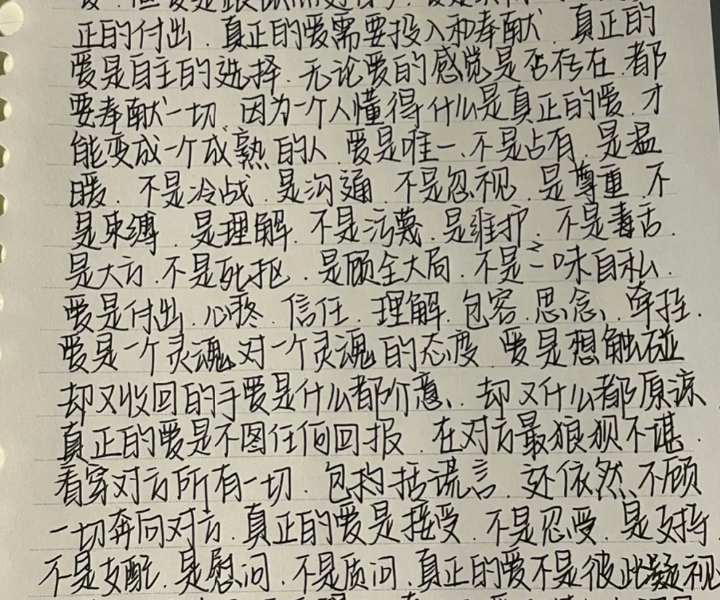 正的付出．真正的爱需要投入和奉献．真正的
爱是自主的选择．无论爱的感觉是否存在．都
要奉献一切．因为一个人懂得什么是真正的爱．才
能变成一个成熟的人．爱是唯一、不是占有．是温
暖．不是冷战．是沟通．不是忽视．是尊重．不
是束缚．是理解．不是污蔑．是维护．不是毒舌．
是大方．不是死抠．是顾全大局．不是一味自私．
爱是付出．心疼．信任．理解．包容．思念、牵挂．
爱是一个灵魂对一个灵魂的态度．爱是想触碰
却又收回的手爱是什么都介意、却又什么都原谅
真正的爱是不图任何回报．在对方最狼狈不谌．
看穿对方所有一切．包括谎言．还依然、不顾
一切奔向对方．真正的爱是接受．不是忍受．是支持
不是支配．是慰问．不是质问．真正的爱不是彼此凝视